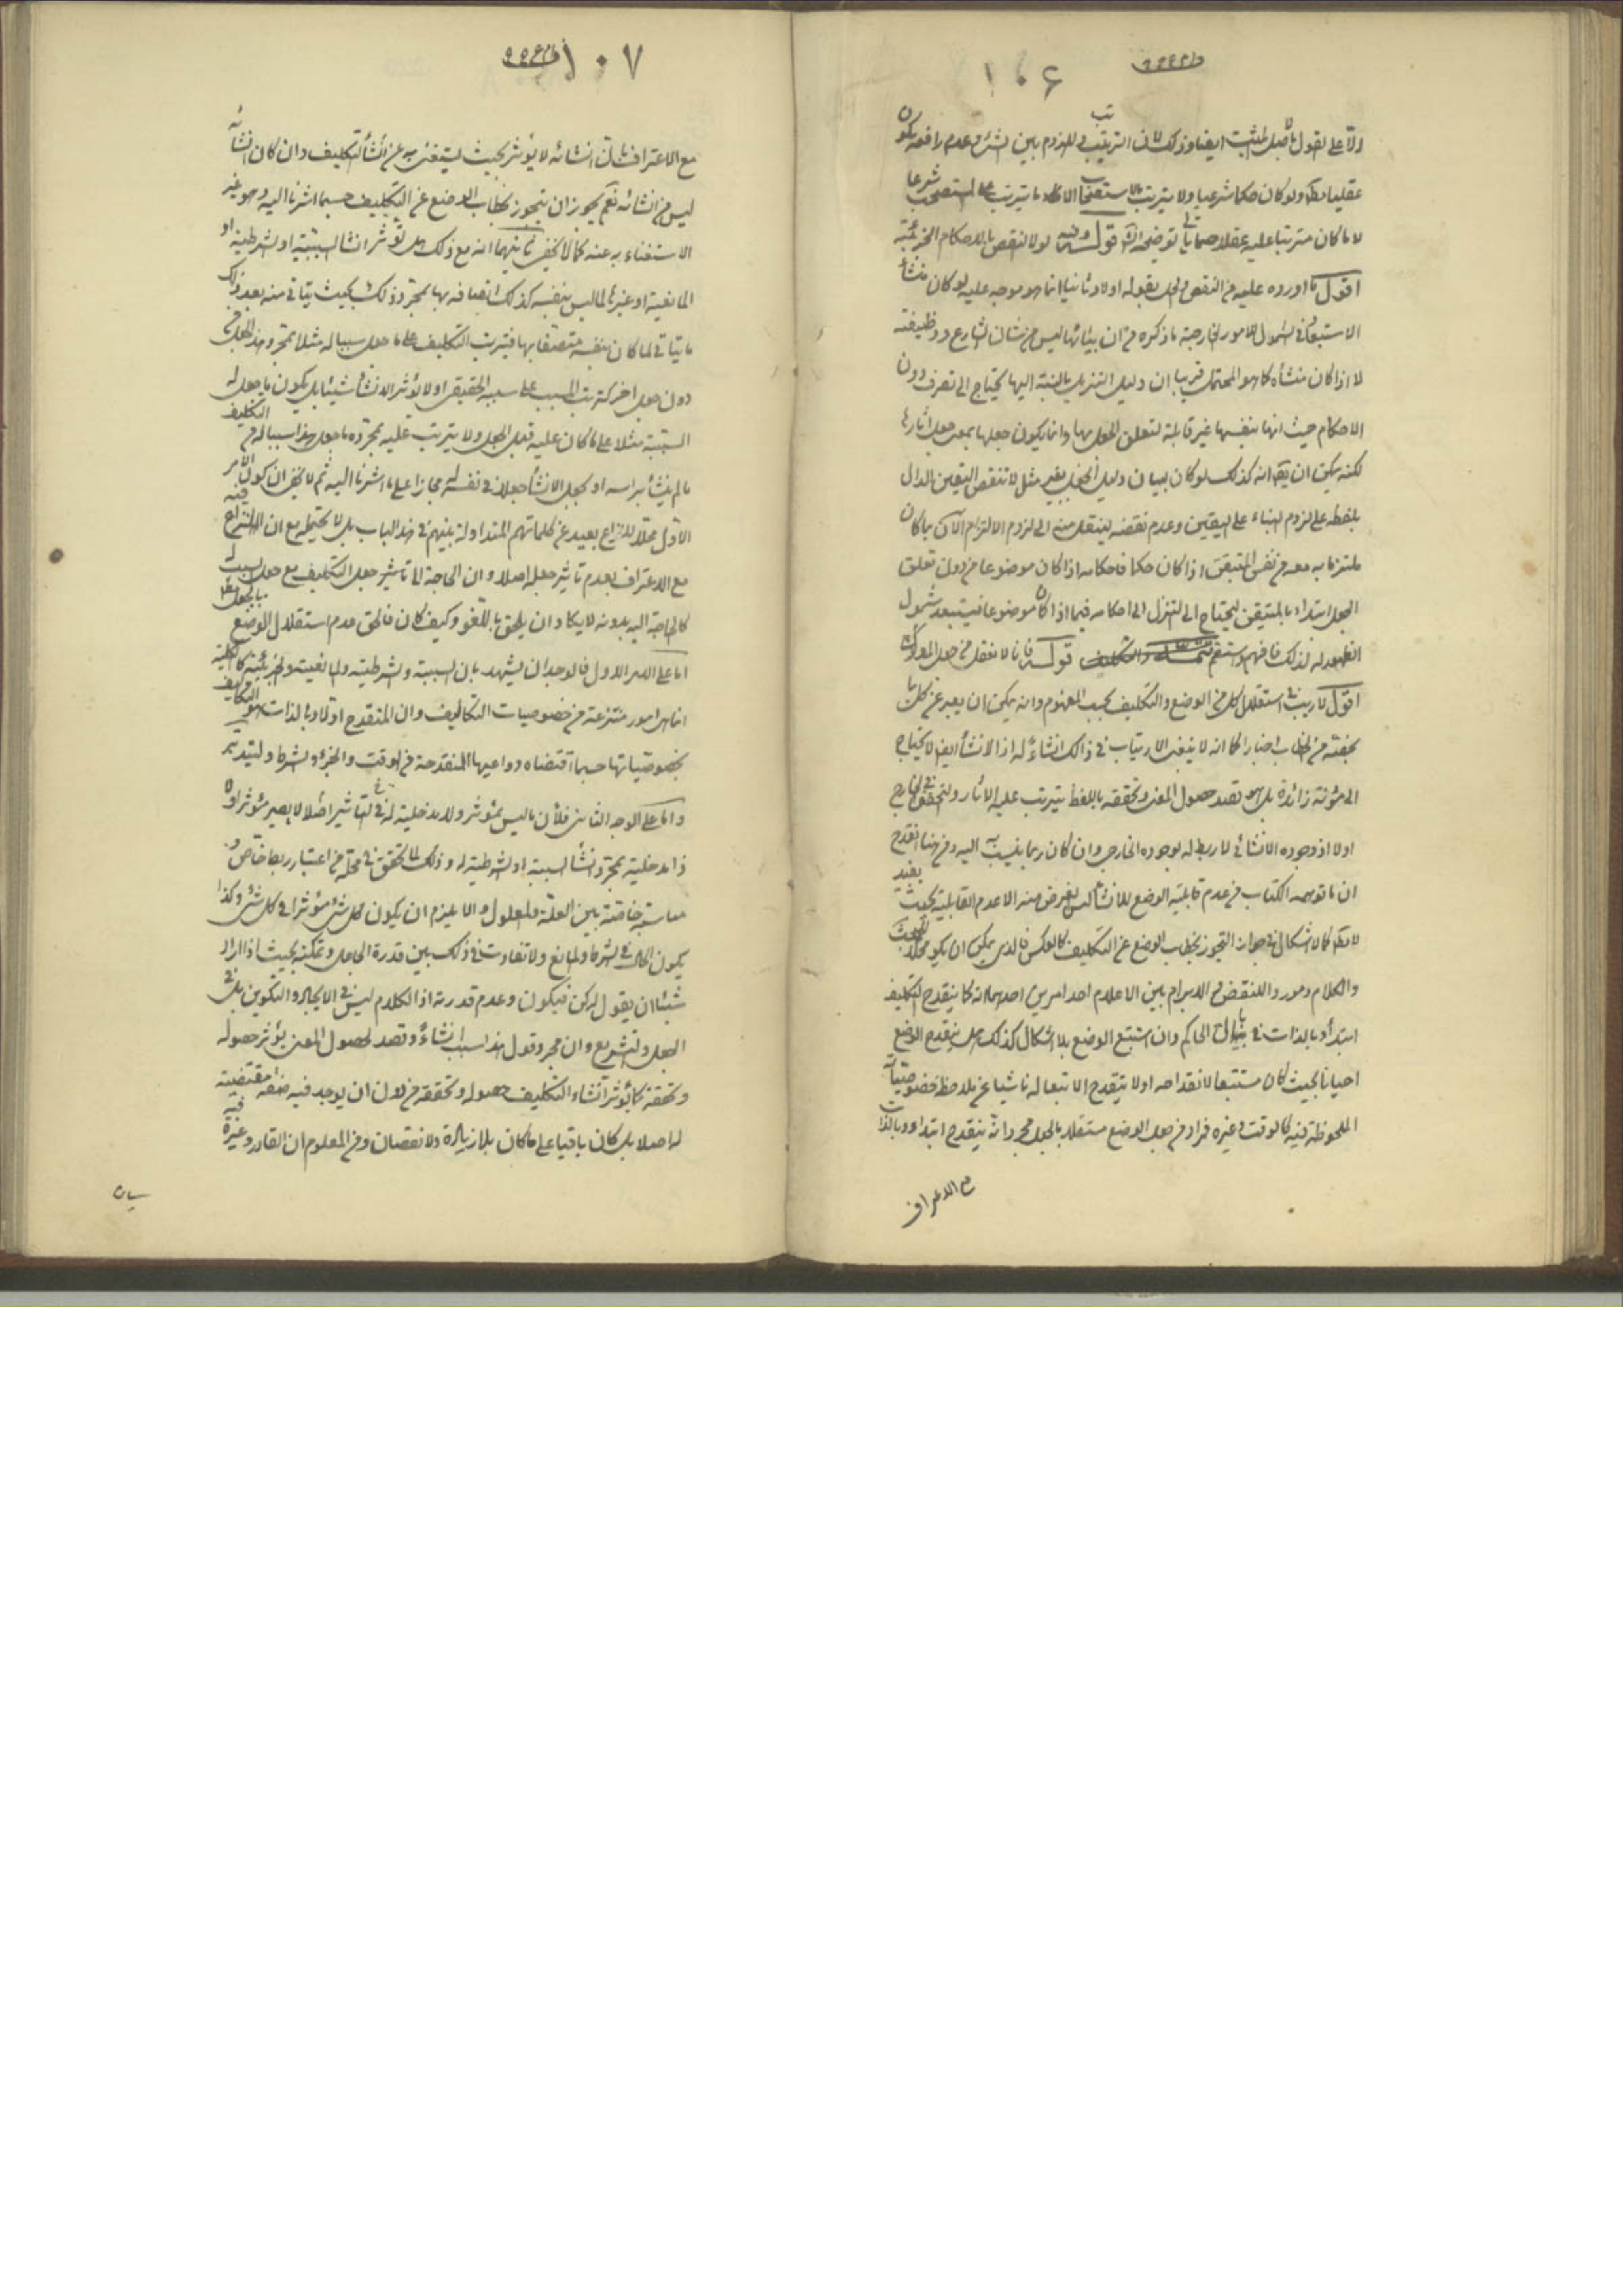 ١٠٦
الا على القول بالاصل المثبت ايضا وذلك لان الترتيب واللزوم بين الشئ وعدم رافعه يكون
عقليا مط ولو كان حكما شرعيا ولا يترتب بالاستصحاب الا ما يترتب على المستصحب شرعا
لا ما كان مترتبا عليه عقلا حسبما يأتى توضيحه قوله وفيه لولا النقض بالاحكام الجزئية
اقول ما اورده عليه من النقض والحل بقوله اولا وثانيا انما هو موجه عليه لو كان منشأ
الاستبعاد فى الشمول للامور الخارجية ما ذكره من ان بيانها ليس من شان الشارع ووظيفته
لا اذا كان منشأه كما هو المحتمل قريبا ان دليل التنزيل بالنسبة اليها يحتاج الى تصرف دون
الاحكام حيث انها بنفسها غير قابلة لتعلق الجعل بها وانما يكون جعلها بمعنى جعل آثارها
لكنه يمكن ان يقال انه كذلك لو كان لبيان دليل الجعل بغير مثل لا تنقض اليقين الدال
بلفظه على لزوم البناء على اليقين وعدم نقضه لينتقل منه الى لزوم الالتزام الآن بما كان
ملتزما به معه من نفس المتيقن اذا كان حكما واحكامه اذا كان موضوعا من دون تعلق
الجعل ابتداء بالمتيقن ليحتاج الى التنزل الى احكامه فيما اذا كان موضوعا فيستبعد شمول
الظهور له لذلك فافهم واستقم قوله فانا لا نعقل من جعل المدلوك
اقول لا ريب فى استقلال كل من الوضع والتكليف بحسب المفهوم وانه يمكن ان يعبر عن كل منهما
بخصته من الخطاب اخبارا كما انه لا ينبغى الارتياب فى ذلك انشاءً له اذ الانشاء ايضا لا يحتاج
الى مؤنة زائدة بل هو قصد حصول المعنى وتحققه باللفظ يترتب عليه الآثار ولتحقق فى الخارج
اولا اذ وجوده الانشائى لا ربط له بوجوده الخارجى وان كان ربما ينسب به اليه ومن هنا انقدح
ان ما توهمه الكتاب من عدم قابلية الوضع للانشاء ليس الغرض منه الا عدم القابلية بحيث يفيد
لا مط كما لا اشكال فى جواز التجوز بخطاب الوضع عن التكليف كالعكس فالذى يمكن ان يكون محلا للبحث
والكلام ومورد النقض والابرام بين الاعلام احد امرين احدهما انه كما ينقدح التكليف
ابتداءً وبالذات فى بال الحاكم وان استتبع الوضع بلا اشكال كذلك هل ينقدح الوضع
احيانا بحيث كان مستتبعا لانقداحه اولا ينقدح الا تبعا له ناشيا عن ملاحظة خصوصياته
الملحوظة فيه كالوقت وغيره فراد من جعل الوضع مستقلا بالجعل مجرد انه ينقدح ابتداء وبالذات
مع الاعتراف
١٠٧
مع الاعتراف بان انشائه لا يؤثر بحيث يستغنى به عن انشاء التكليف وان كان انشائه
ليس من انشائه نعم يجوز ان يتجوز بخطاب الوضع عن التكليف حسبما اشرنا اليه وهو غير
الاستغناء به عنه كما لا يخفى ثانيهما انه مع ذلك هل يؤثر انشاء السببية او الشرطية او
المانعية او غيرها لما ليس بنفسه كذلك اتصافه بها بمجرد ذلك بحيث يتأتى منه بعد ذلك
ما يتأتى لما كان بنفسه متصفا بها فيترتب التكليف على ما جعل سببا له مثلا بمجرد هذا الجعل من
دون جعل اخر كترتب المسبب على سببه الحقيقى اولا يؤثر الانشاء شيئا بل يكون ما جعل له
السببية مثلا على ما كان عليه قبل الجعل ولا يترتب عليه بمجرده ما جعل هذا سببا له من التكليف
ما لم ينشأ براسه او بجعل الانشاء جعلا فى نفسه له مجازا على ما اشرنا اليه ثم لا يخفى ان كون الامر
الاول محلا للنزاع بعيد عن كلماتهم المتداولة بينهم فى هذا الباب بل لا يحتمله مع ان النزاع فيه
مع الاعتراف بعدم تاثير جعله اصلا وان الحاجة الى تاثير جعل التكليف مع جعل السبب له
كالحاجة اليه بدونه لا يكاد ان يلحق باللغو وكيف كان فالحق عدم استقلال الوضع بالجعل مط
اما على الامر الاول فالوجدان يشهد بان السببية والشرطية والمانعية والجزئية كالكلية
انما هى امور منتزعة من خصوصيات التكاليف وان المنقدح اولا وبالذات هو التكليف
بخصوصياتها حسبما اقتضاه دواعيها المنقدحة من الوقت والجزء والشرط وليتدبر
واما على الوجه الثانى فلأن ما ليس بمؤثر ولا مدخلية له فى التأثير اصلا لا يصير مؤثرا او
ذا مدخلية بمجرد انشاء السببية او الشرطية له وذلك لما تحقق فى محله من اعتبار ربط خاص و
مناسبة خاصة بين العلة والمعلول والا يلزم ان يكون كل شئ مؤثرا فى كل شئ وكذا
يكون الحال فى الشرط والمانع ولا تفاوت فى ذلك بين قدرة الجاعل وتمكنه بحيث اذا اراد
شيئا ان يقول له كن فيكون وعدم قدرته اذ الكلام ليس فى الايجاد والتكوين بل فى
الجعل والتشريع وان مجرد قول هذا سبب انشاءً وقصد لحصول المعنى يؤثر حصوله
وتحققه كما يؤثر انشاء التكليف حصوله وتحققه من دون ان يوجد فيه صفة مقتضية
له اصلا بل كان باقيا على ما كان بلا زيادة ولا نقصان ومن المعلوم ان القادر وغيره فيه
سيان